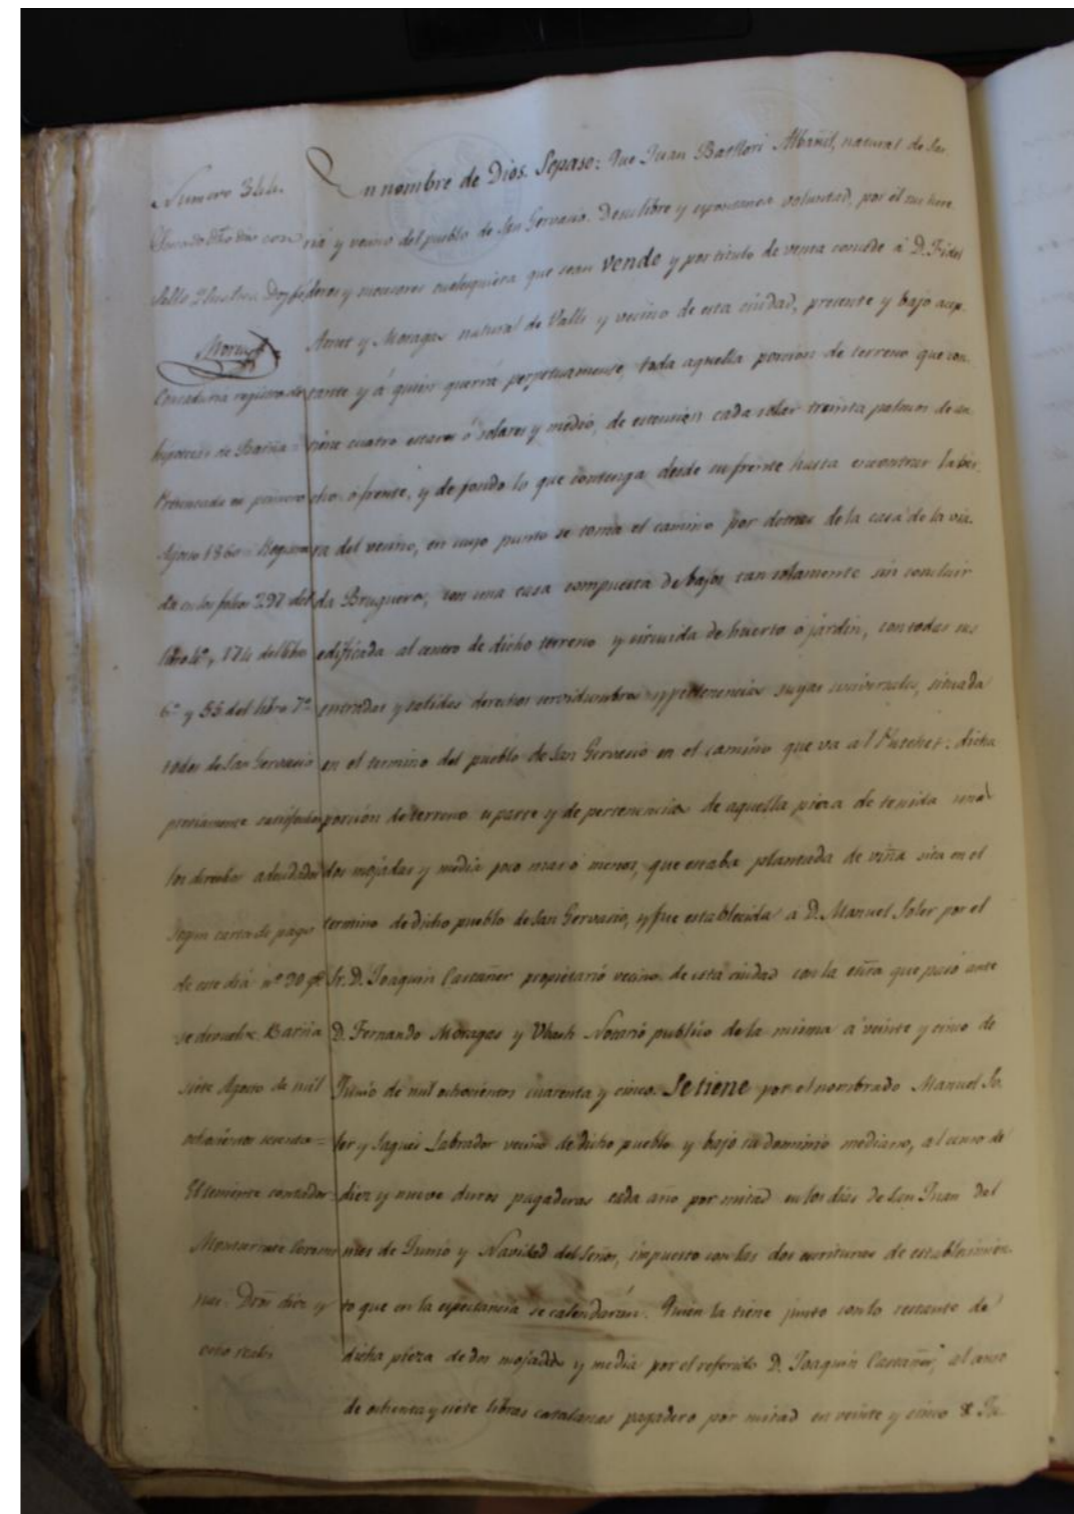 Numero 344.
Sacado dho dia con
sello Ilustres. Doy fé
Contaduria registro de
hipotecas de Barña =
Presentada en primero
Agosto 1860 = Registra
da en los folios 297 del
libro 4º, 174 del libro
6º y 55 del libro 7º
todos de San Gervasio
previamente satisfechos
los derechos adeudados
segun carta de pago
de este dia nº 20 qe
se devuelve. Barña
siete Agosto de mil
ochocientos sesenta =
El teniente contador
Montserrate
diez y
ocho reales
En nombre de Dios. Sepase: Que Juan Batllori Albañil, natural de Sar
riá y vecino del pueblo de San Gervasio. De su libre y espontanea voluntad, por él sus here
deros y sucesores cualesquiera que sean vende y por titulo de venta concede á D. Fidel
Amet y Moragas natural de Valls y vecino de esta ciudad, presente y bajo acep
tante y á quien querrá perpetuamente, toda aquella porcion de terreno que con
tiene cuatro estares ó solares y medio, de estension cada solar treinta palmos de an
cho ó frente, y de fondo lo que contenga desde su frente hasta encontrar la
ra del vecino, en cuyo punto se toma el camino por detras de la casa de la viu
da Bruguera, con una casa compuesta de bajos tan solamente sin concluir
edificada al centro de dicho terreno y circuida de huerto ó jardin, con todas sus
entradas y salidas derechos servidumbres y pertenencias suyas universales, situada
en el termino del pueblo de San Gervasio en el camino que va al Putchet: dicha
porción de terreno es parte y de pertenencias de aquella pieza de tenida
dos mojadas y media poco mas ó menos, que estaba plantada de viña sita en el
termino de dicho pueblo de San Gervasio, y fue establecida á D. Manuel Soler por el
Sr. D. Joaquin Castañer propietario vecino de esta ciudad con la escra que pasó ante
D. Fernando Moragas y Ubach Notario publico de la misma a veinte y cinco de
Junio de mil ochocientos cuarenta y cinco. Se tiene por el nombrado Manuel So
ler y Sagués Labrador vecino de dicho pueblo y bajo su dominio mediano, al censo de
diez y nueve duros pagaderos cada año por mitad en los dias de San Juan del
mes de Junio y Navidad del Señor, impuesto con las dos escrituras de establecimien
to que en la espectancia se calendarán. Quien la tiene junto con lo restante de
dicha pieza de dos mojadas y media por el referido D. Joaquin Castañer, al censo
de ochenta y siete libras catalanas pagadero por mitad en veinte y cinco de Ju